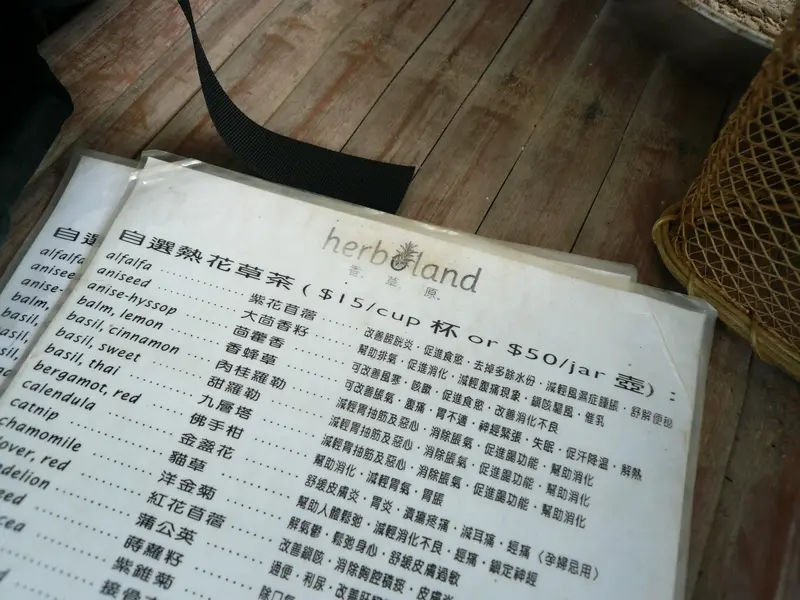 herboland
香 草 原
自選熱花草茶 ( $15/cup 杯 or $50/jar 壺) :
alfalfa 紫花苜蓿 改善膀胱炎．促進食慾．去掉多餘水份．減輕風濕症腫脹．舒解便秘
aniseed 大茴香籽 幫助排氣．促進消化．減輕腹痛現象．鎮咳驅風．催乳
anise-hyssop 茴藿香 可改善風寒．咳嗽．促進食慾．改善消化不良
balm, lemon 香蜂草 可改善脹氣．腹痛．胃不適．神經緊張．失眠．促汗降溫．解熱
basil, cinnamon 肉桂羅勒 減輕胃抽筋及惡心．消除脹氣．促進腸功能．幫助消化
basil, sweet 甜羅勒 減輕胃抽筋及惡心．消除脹氣．促進腸功能．幫助消化
basil, thai 九層塔 減輕胃抽筋及惡心．消除脹氣．促進腸功能．幫助消化
bergamot, red 佛手柑 幫助消化．減輕胃氣．胃脹
calendula 金盞花 舒緩皮膚炎．胃炎．潰瘍疼痛．減耳痛．經痛〈孕婦忌用〉
catnip 貓草 幫助人體鬆弛．減輕消化不良．經痛．鎮定神經
chamomile 洋金菊 解氣鬱．鬆弛身心．舒緩皮膚過敏
lover, red 紅花苜蓿 改善鎮咳．消除胸腔積痰．皮膚炎
ndelion 蒲公英 通便．利尿．改善
eed 蒔蘿籽 除口氣
cea 紫錐菊
接骨木
自選
alfalfa
anisee
anise-
balm,
basil,
basil,